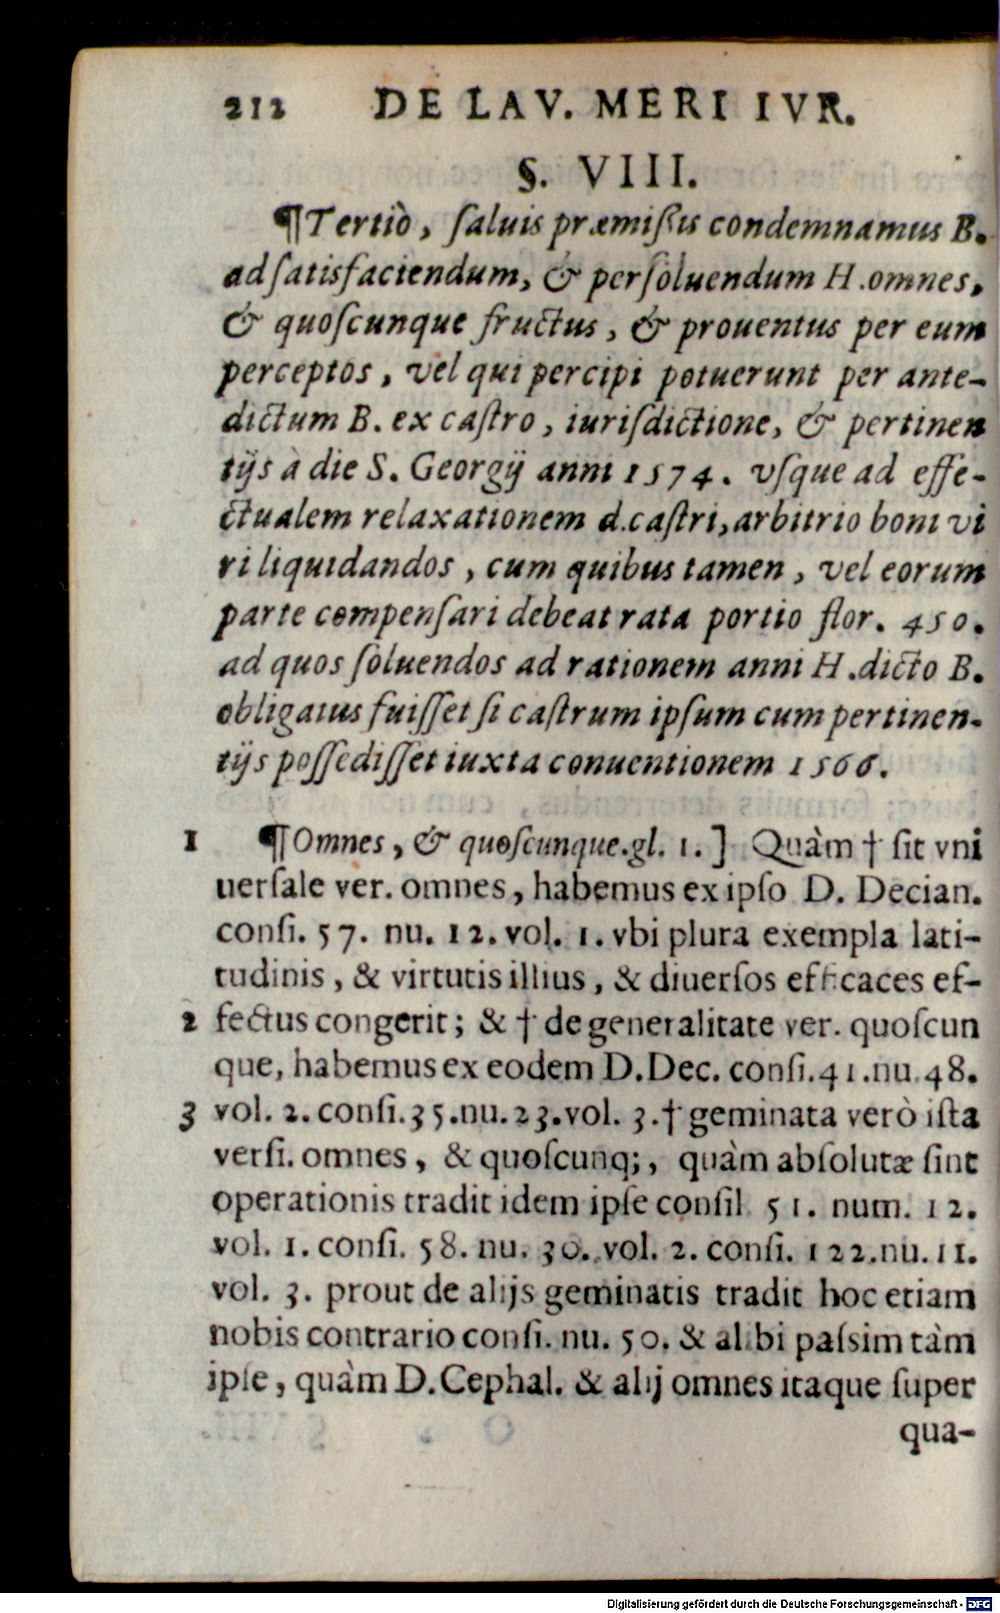 212 DE LAV. MERI IVR.
§. VIII.
¶Tertiò, ſaluis præmiſsis condemnamus B.
ad ſatisfaciendum, & perſoluendum H. omnes,
& quoſcunque fructus, & prouentus per eum
perceptos, vel qui percipi potuerunt per ante-
dictum B. ex caſtro, iuriſdictione, & pertinen
tijs à die S. Georgij anni 1574. vſque ad effe-
ctualem relaxationem d. caſtri, arbitrio boni vi
ri liquidandos, cum quibus tamen, vel eorum
parte compenſari debeat rata portio flor. 450.
ad quos ſoluendos ad rationem anni H. dicto B.
obligatus fuiſſet ſi caſtrum ipſum cum pertinen-
tijs poſſediſſet iuxta conuentionem 1566.
1 ¶Omnes, & quoſcunque. gl. 1.] Quàm † ſit vni
uerſale ver. omnes, habemus ex ipſo D. Decian.
conſi. 57. nu. 12. vol. 1. vbi plura exempla lati-
tudinis, & virtutis illius, & diuerſos efficaces ef-
2 fectus congerit; & † de generalitate ver. quoſcun
que, habemus ex eodem D. Dec. conſi. 41. nu. 48.
3 vol. 2. conſi. 35. nu. 23. vol. 3. † geminata verò iſta
verſi. omnes, & quoſcunq;, quàm abſolutæ ſint
operationis tradit idem ipſe conſil. 51. num. 12.
vol. 1. conſi. 58. nu. 30. vol. 2. conſi. 122. nu. 11.
vol. 3. prout de alijs geminatis tradit hoc etiam
nobis contrario conſi. nu. 50. & alibi paſsim tàm
ipſe, quàm D. Cephal. & alij omnes itaque ſuper
qua-
Digitalisierung gefördert durch die Deutsche Forschungsgemeinschaft - DFG